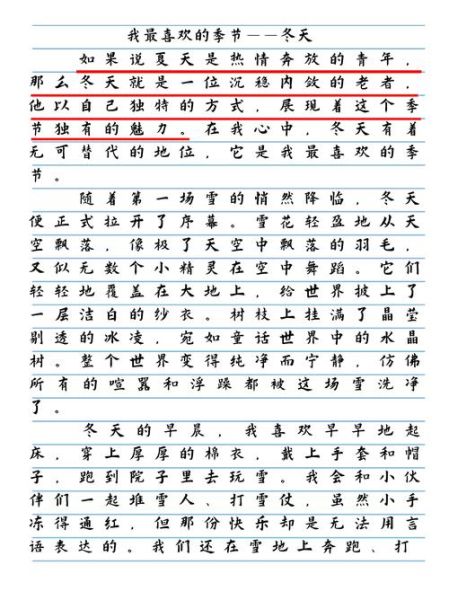 我最喜欢的季节——冬天
如果说夏天是热情奔放的青年，
那么冬天就是一位沉稳内敛的老者，
他以自己独特的方式，展现着这个季
节独有的魅力。在我心中，冬天有着
无可替代的地位，它是我最喜欢的季
节。
随着第一场雪的悄然降临，冬天
便正式拉开了序幕。雪花轻盈地从天
空飘落，像极了天空中飘落的羽毛，
又似无数个小精灵在空中舞蹈。它们
轻轻地覆盖在大地上，给世界披上了
一层洁白的纱衣。树枝上挂满了晶莹
剔透的冰凌，宛如童话世界中的水晶
树。整个世界变得纯净而宁静，仿佛
所有的喧嚣和浮躁都被这场雪洗净
了。
冬天的早晨，我喜欢早早地起
床，穿上厚厚的棉衣，戴上手套和帽
子，跑到院子里去玩雪。我会和小伙
伴们一起堆雪人、打雪仗，虽然小手
冻得通红，但那份快乐却是无法用言
语表达的。我们还在雪地上奔跑、打